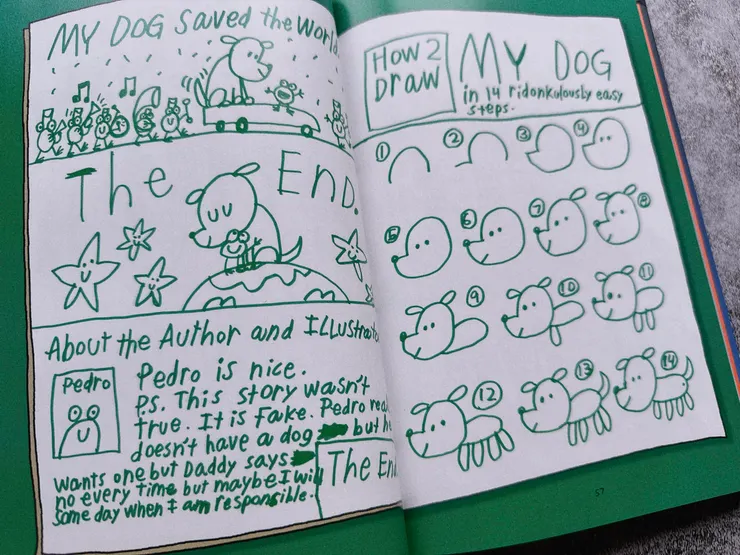 MY DOG Saved the World
The END.
About the Author and ILLustrator
Pedro
Pedro is nice.
P.S. This story wasn't
true. It is Fake. Pedro
doesn't have a dog but
wants one but Daddy says
no every time but maybe I will
some day when I am responsible.
The End
How 2
Draw
MY DOG
in 14 ridonkulously easy
steps.
1
2
3
4
5
6
7
8
9
10
11
12
13
14
57